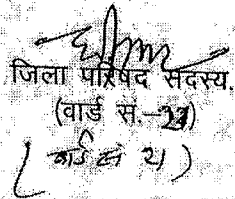 जिला परिषद सदस्य.
(वार्ड सं.-21)
(वार्ड सं 21)